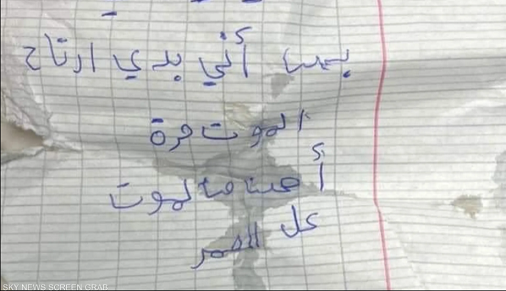 بس أني بدي ارتاح
الموت مرة
أهون من الموت
كل العمر
SKY NEWS SCREEN GRAB